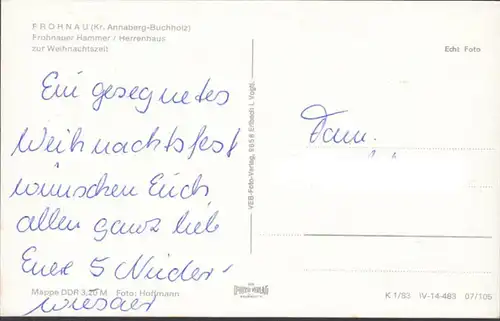 FROHNAU (Kr. Annaberg-Buchholz)
Frohnauer Hammer / Herrenhaus
zur Weihnachtszeit
Echt Foto
Ein gesegnetes
Weihnachtsfest
wünschen Euch
allen ganz lieb
Eure 5 Nieder-
wieser
Fam.
VEB-Foto-Verlag, 9656 Erlbach i. Vogtl.
Mappe DDR 3,20 M Foto: Hoffmann
K 1/83 IV-14-483 07/105